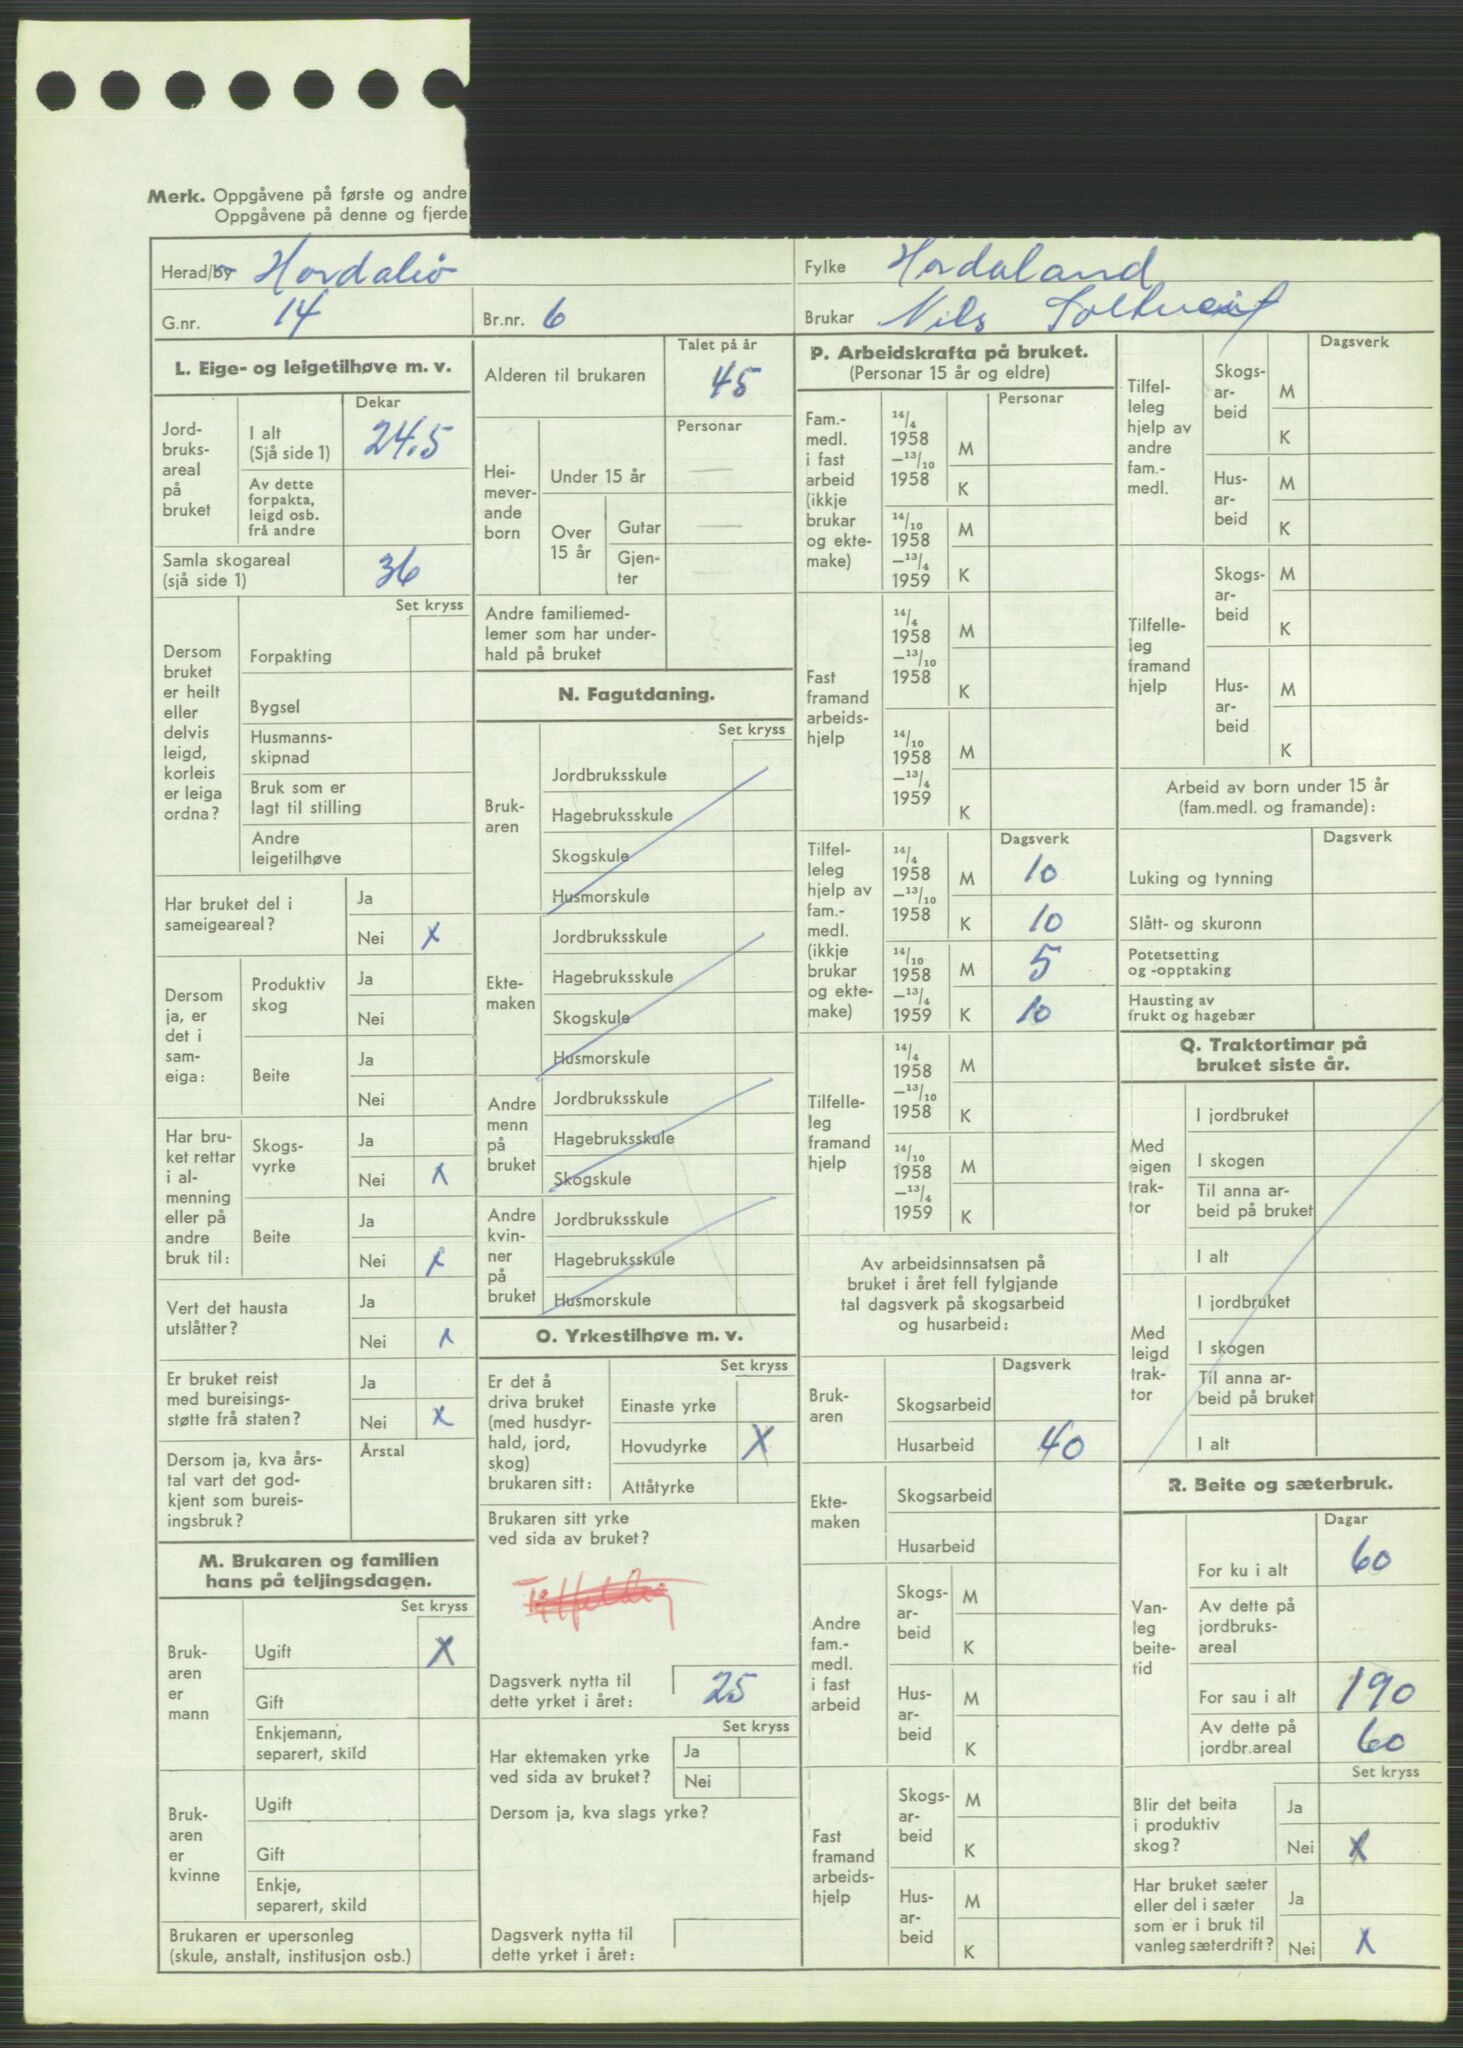 Merk. Oppgåvene på første og andre
Oppgåvene på denne og fjerde
Herad/by Hordabø
Fylke Hordaland
G.nr. 14
Br.nr. 6
Brukar Nils Soltveit
L. Eige- og leigetilhøve m. v.
Dekar
Jord-
bruks-
areal
på
bruket
I alt
(Sjå side 1)
24.5
Av dette
forpakta,
leigd osb.
frå andre
Samla skogareal
(sjå side 1)
36
Set kryss
Dersom
bruket
er heilt
eller
delvis
leigd,
korleis
er leiga
ordna?
Forpakting
Bygsel
Husmanns-
skipnad
Bruk som er
lagt til stilling
Andre
leigetilhøve
Har bruket del i
sameigeareal?
Ja
Nei x
Dersom
ja, er
det i
sam-
eiga:
Produktiv
skog
Ja
Nei
Beite
Ja
Nei
Har bru-
ket rettar
i al-
menning
eller på
andre
bruk til:
Skogs-
vyrke
Ja
Nei x
Beite
Ja
Nei x
Vert det hausta
utslåtter?
Ja
Nei x
Er bruket reist
med bureisings-
støtte frå staten?
Ja
Nei x
Dersom ja, kva års-
tal vart det god-
kjent som bureis-
ingsbruk?
Årstal
M. Brukaren og familien
hans på teljingsdagen.
Set kryss
Bruk-
aren
er
mann
Ugift X
Gift
Enkjemann,
separert, skild
Bruk-
aren
er
kvinne
Ugift
Gift
Enkje,
separert, skild
Brukaren er upersonleg
(skule, anstalt, institusjon osb.)
Talet på år
Alderen til brukaren 45
Personar
Hei-
mever-
ande
born
Under 15 år —
Over
15 år
Gutar —
Gjen-
ter —
Andre familiemed-
lemer som har under-
hald på bruket
N. Fagutdaning.
Set kryss
Bruk-
aren
Jordbruksskule
Hagebruksskule
Skogskule
Husmorskule
Ekte-
maken
Jordbruksskule
Hagebruksskule
Skogskule
Husmorskule
Andre
menn
på
bruket
Jordbruksskule
Hagebruksskule
Skogskule
Andre
kvin-
ner
på
bruket
Jordbruksskule
Hagebruksskule
Husmorskule
O. Yrkestilhøve m. v.
Set kryss
Er det å
driva bruket
(med husdyr-
hald, jord,
skog)
brukaren sitt:
Einaste yrke
Hovudyrke X
Attåtyrke
Brukaren sitt yrke
ved sida av bruket?
Dagsverk nytta til
dette yrket i året:
25
Set kryss
Har ektemaken yrke
ved sida av bruket?
Ja
Nei
Dersom ja, kva slags yrke?
Dagsverk nytta til
dette yrket i året:
P. Arbeidskrafta på bruket.
(Personar 15 år og eldre)
Personar
Fam.-
medl.
i fast
arbeid
(ikkje
brukar
og ekte-
make)
14/4
1958
—13/10
1958
M
K
14/10
1958
—13/4
1959
M
K
Fast
framand
arbeids-
hjelp
14/4
1958
—13/10
1958
M
K
14/10
1958
—13/4
1959
M
K
Dagsverk
Tilfel-
leleg
hjelp av
fam.-
medl.
(ikkje
brukar
og ekte-
make)
14/4
1958
—13/10
1958
M 10
K 10
14/10
1958
—13/4
1959
M 5
K 10
Tilfelle-
leg
framand
hjelp
14/4
1958
—13/10
1958
M
K
14/10
1958
—13/4
1959
M
K
Av arbeidsinnsatsen på
bruket i året fell fylgjande
tal dagsverk på skogsarbeid
og husarbeid:
Dagsverk
Bruk-
aren
Skogsarbeid
Husarbeid 40
Ekte-
maken
Skogsarbeid
Husarbeid
Andre
fam.-
medl.
i fast
arbeid
Skogs-
ar-
beid
M
K
Hus-
ar-
beid
M
K
Fast
framand
arbeids-
hjelp
Skogs-
ar-
beid
M
K
Hus-
ar-
beid
M
K
Dagsverk
Tilfel-
leleg
hjelp av
andre
fam.-
medl.
Skogs-
ar-
beid
M
K
Hus-
ar-
beid
M
K
Tilfelle-
leg
framand
hjelp
Skogs-
ar-
beid
M
K
Hus-
ar-
beid
M
K
Arbeid av born under 15 år
(fam.medl. og framande):
Dagsverk
Luking og tynning
Slått- og skuronn
Potetsetting
og -opptaking
Hausting av
frukt og hagebær
Q. Traktortimar på
bruket siste år.
Med
eigen
trak-
tor
I jordbruket
I skogen
Til anna ar-
beid på bruket
I alt
Med
leigd
trak-
tor
I jordbruket
I skogen
Til anna ar-
beid på bruket
I alt
R. Beite og sæterbruk.
Dagar
Van-
leg
beite-
tid
For ku i alt 60
Av dette på
jordbruks-
areal
For sau i alt 190
Av dette på
jordbr.areal
60
Set kryss
Blir det beita
i produktiv
skog?
Ja
Nei x
Har bruket sæter
eller del i sæter
som er i bruk til
vanleg sæterdrift?
Ja
Nei x